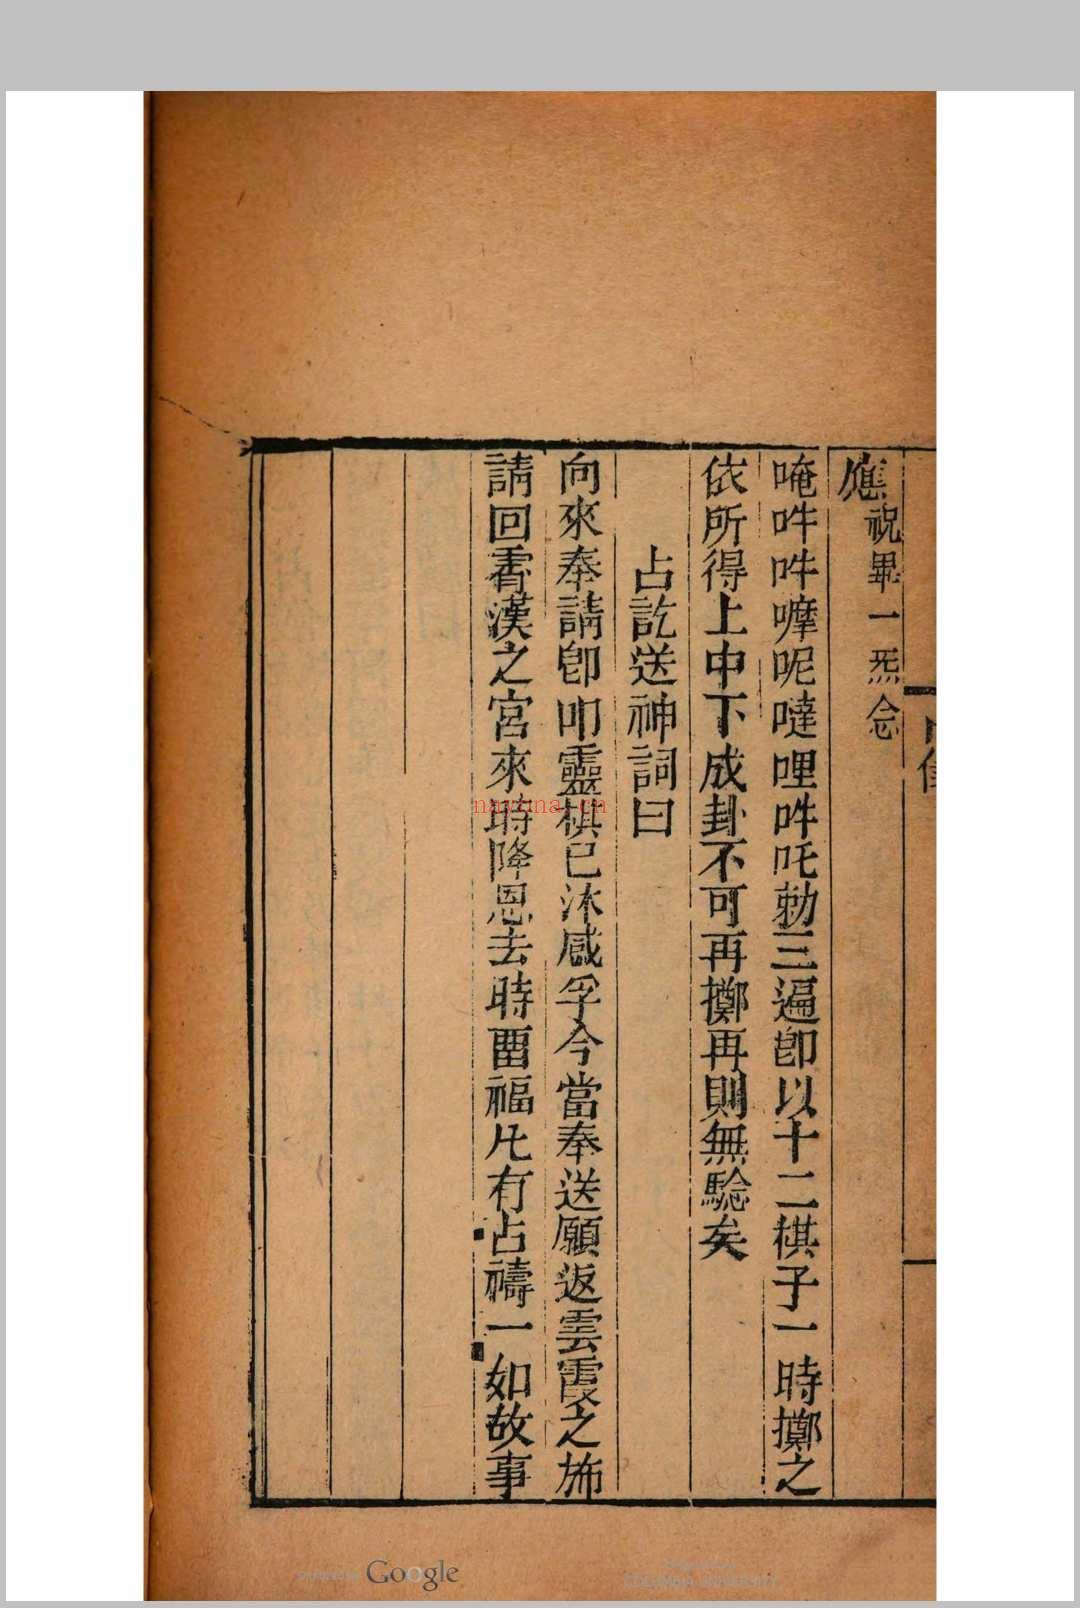 應祝畢一炁念
唵吽吽嚤呢噠哩吽吒勑三遍卽以十二棋子一時擲之
依所得上中下成卦不可再擲再則無騐矣
占訖送神詞曰
向來奉請卽叩靈棋已沐感孚今當奉送願返雲霞之斾
請回霄漢之宮來時降恩去時畱福凡有占禱一如故事
nayona.cn
Google